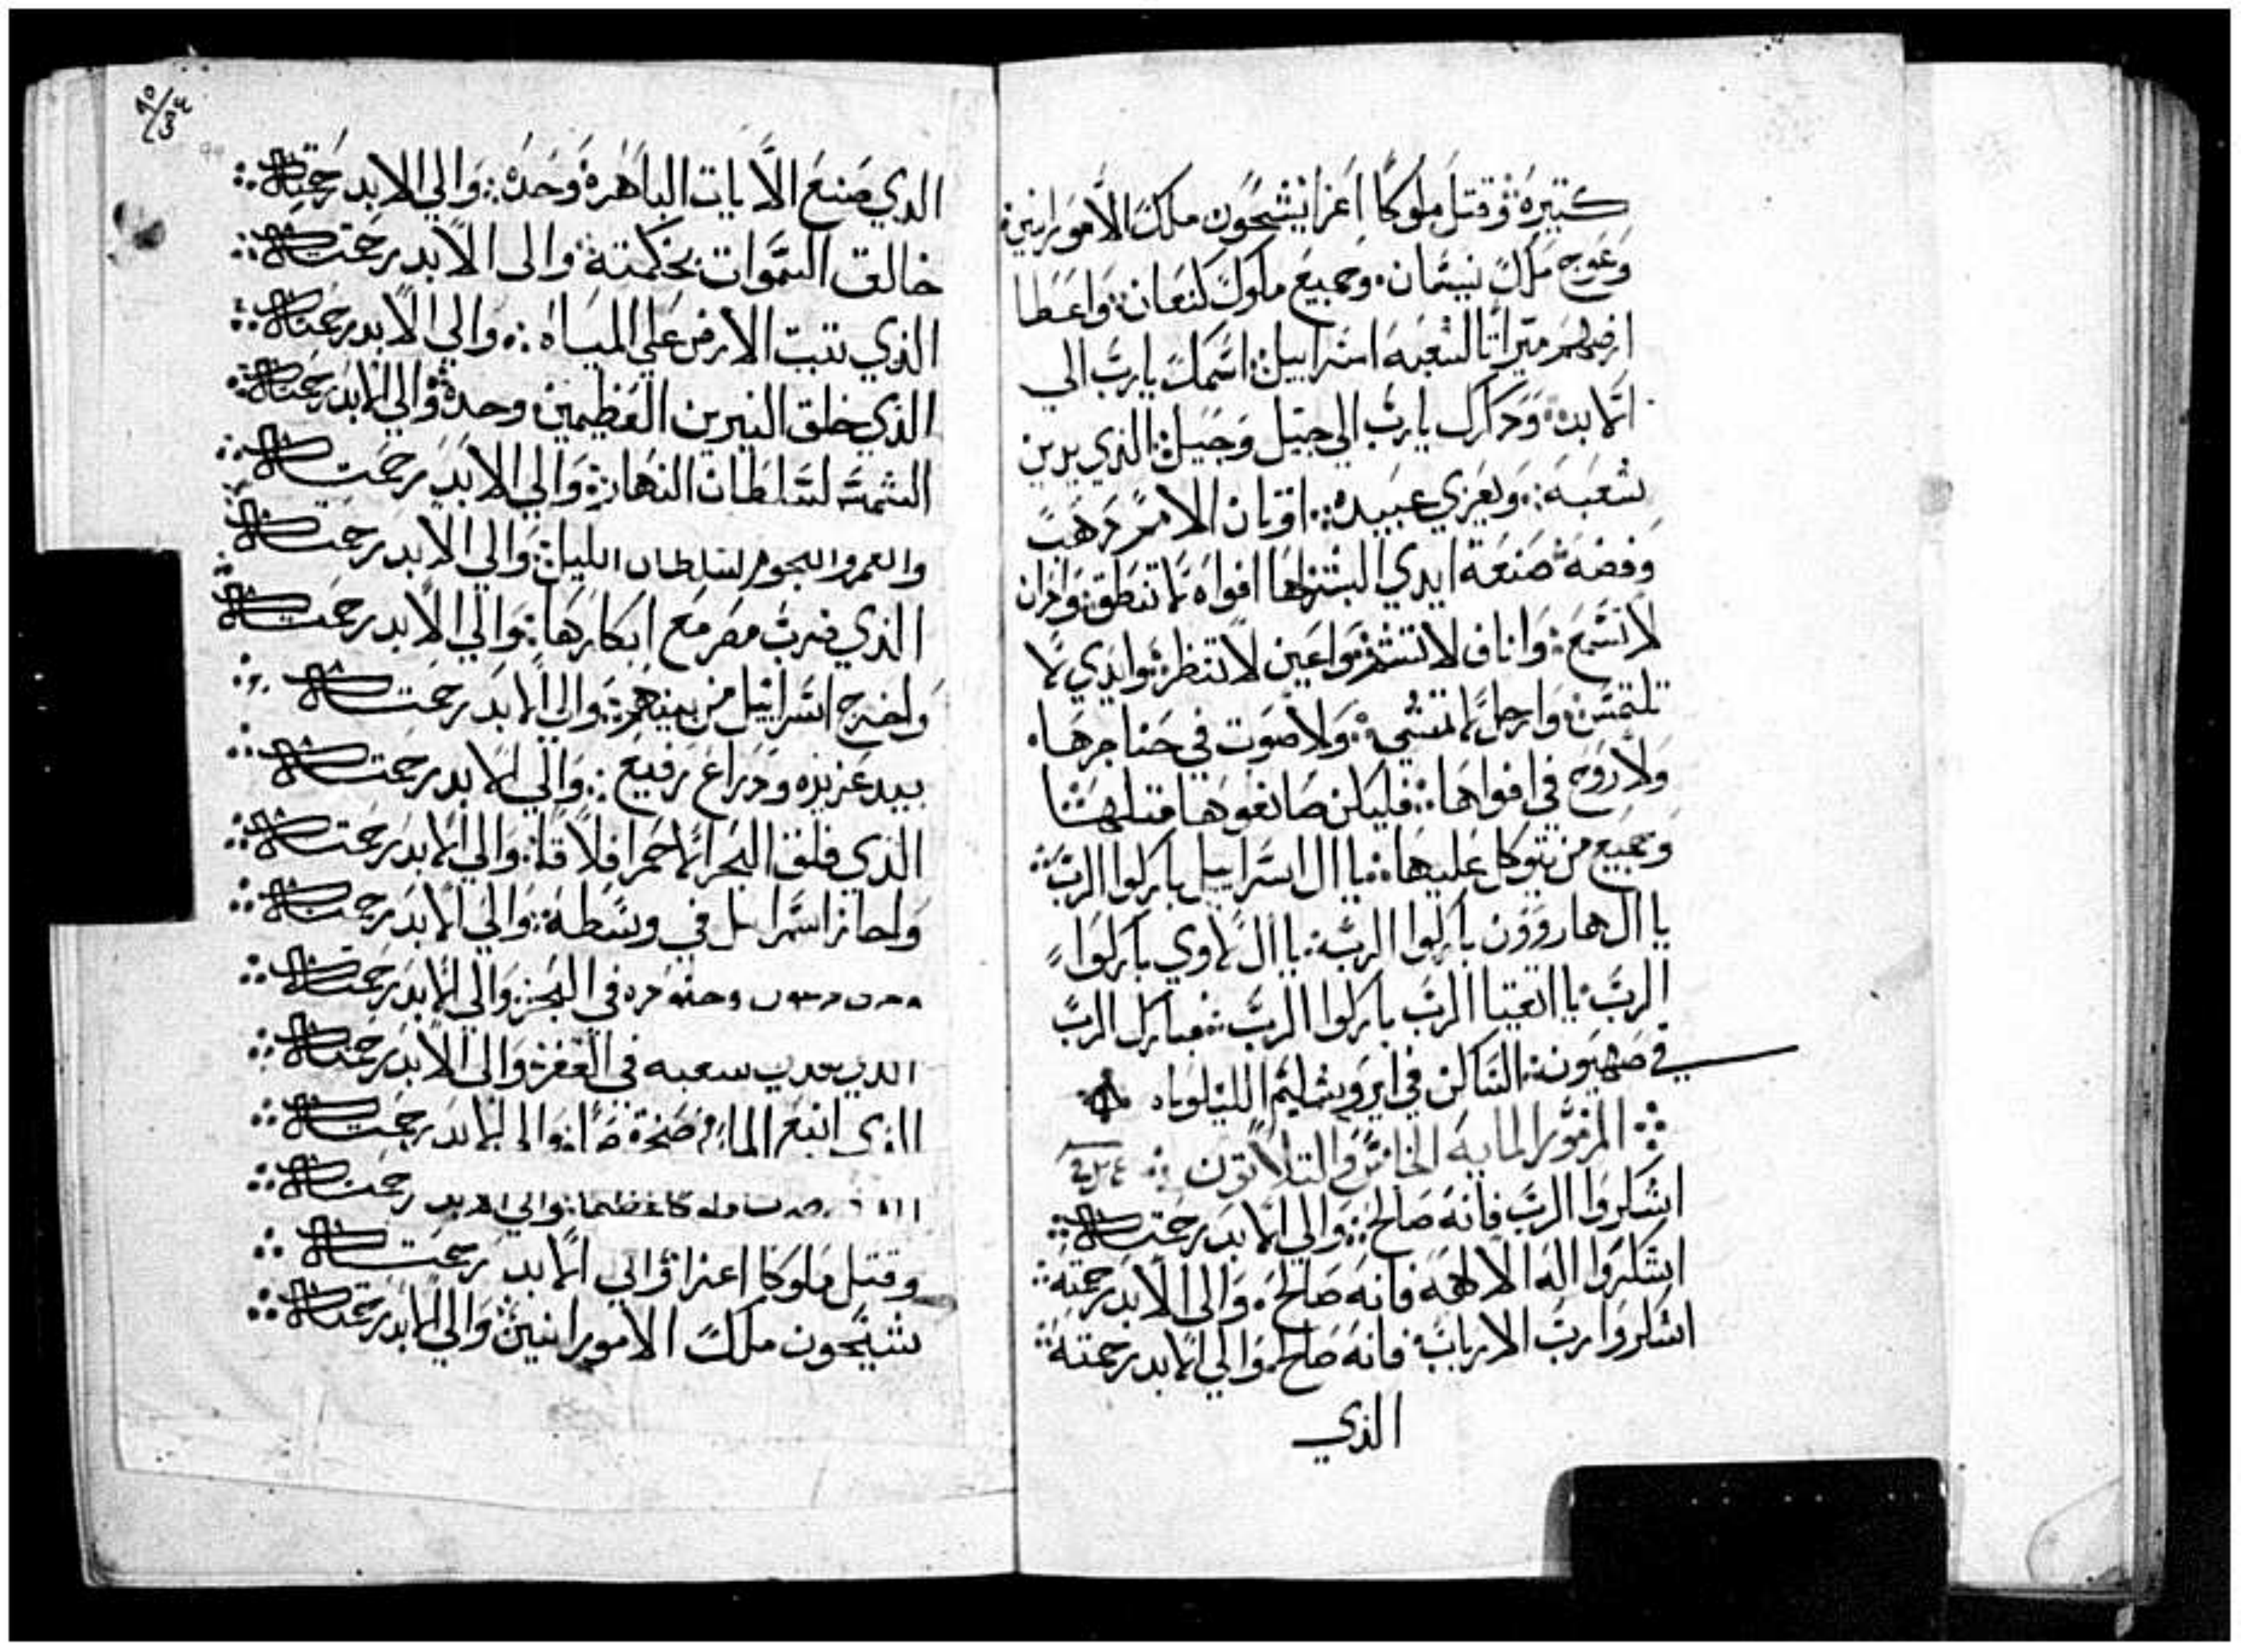 كتيرة وقتل ملوكًا اعزا شيحون ملك الامورانين
وعوج ملك نيسان وجميع ملوك كنعان واعطا
ارضهم ميراتًا لشعبه اسراييل اسمك يارب الي
الابد ودكرك يارب الي جيل وجيل الذي يدين
شعبه ويعزي عبيده اوتان الامم دهب
وفضه صنعة ايدي البشر لها افواه لا تنطق وادان
لا تسمع واناف لا تشتم واعين لا تنظر وايدي لا
تلتمس وارجل لا تمشي ولا صوت في حناجرها
ولا روح في افواهها فليكن صانعوها متلها
وجميع من يتوكل عليها يا ال اسراييل باركوا الرب
يا ال هارون باركوا الرب يا ال لاوي باركوا
الرب يا اتقيا الرب باركوا الرب تبارك الرب
في صهيون الساكن في ايروشليم الليلوياه
المزمور المايه الخامس والتلاتون
اشكروا الرب فانه صالح والي الابد رحمته
اشكروا اله الالهه فانه صالح والي الابد رحمته
اشكروا رب الارباب فانه صالح والي الابد رحمته
الذي
الذي صنع الايات الباهرة وحده والي الابد رحمته
خالق السموات بحكمته والي الابد رحمته
الذي تبت الارض علي المياه والي الابد رحمته
الذي خلق النيرين العظيمين وحده والي الابد رحمته
الشمس لسلطان النهار والي الابد رحمته
والقمر والنجوم لسلطان الليل والي الابد رحمته
الذي ضرب مصر مع ابكارها والي الابد رحمته
واخرج اسراييل من بينهم والي الابد رحمته
بيد عزيزه ودراع رفيع والي الابد رحمته
الذي فلق البحر الاحمر افلاقا والي الابد رحمته
واجاز اسراىل في وسطه والي الابد رحمته
وجنوده في البحر والي الابد رحمته
الذي شعبه في القفر والي الابد رحمته
الذي انبع الما من صخرة صما والي الابد رحمته
ملوكا عظما والي الابد رحمته
وقتل ملوكا اعزا والي الابد رحمته
شيحون ملك الامورانين والي الابد رحمته